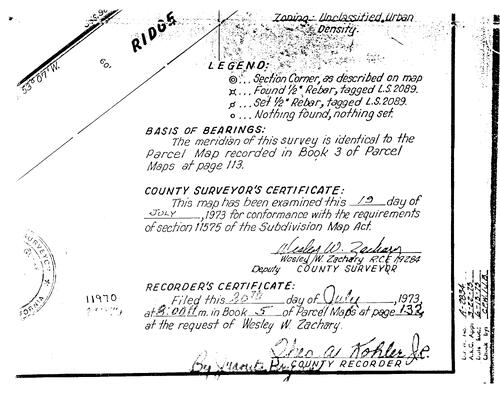 Zoning: Unclassified, Urban
Density.
RIDGE
60.
53° 07' W.
LEGEND:
... Section Corner, as described on map
... Found 1/2" Rebar, tagged L.S. 2089.
... Set 1/2" Rebar, tagged L.S. 2089.
... Nothing found, nothing set.
BASIS OF BEARINGS:
The meridian of this survey is identical to the
Parcel Map recorded in Book 3 of Parcel
Maps at page 113.
COUNTY SURVEYOR'S CERTIFICATE:
This map has been examined this 19 day of
JULY, 1973 for conformance with the requirements
of section 11575 of the Subdivision Map Act.
Wesley W. Zachary
Wesley W. Zachary R.C.E. 19284
Deputy COUNTY SURVEYOR
RECORDER'S CERTIFICATE:
11970
Filed this 20th day of July, 1973,
at 8:00 A.M. in Book 5 of Parcel Maps at page 132,
at the request of Wesley W. Zachary.
Theo A. Kohler Jr.
By
COUNTY RECORDER